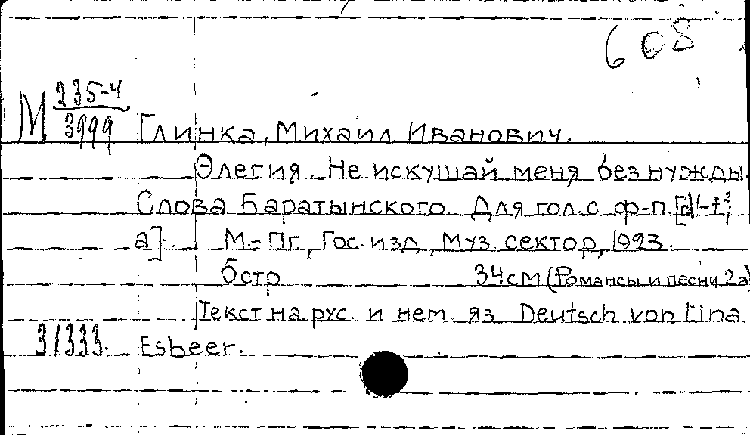 608
М 235-4
3999
Глинка, Михаил Иванович.
Элегия. Не искушай меня без нужды.
Слова Баратынского. Для гол. с ф-п.
а]. М.-Пг., Гос. изд., муз. сектор, 1923.
6стр 34см (Романсы и песни 2а)
Текст на рус. и нем. яз. Deutsch von Lina
31333. Esbeer.